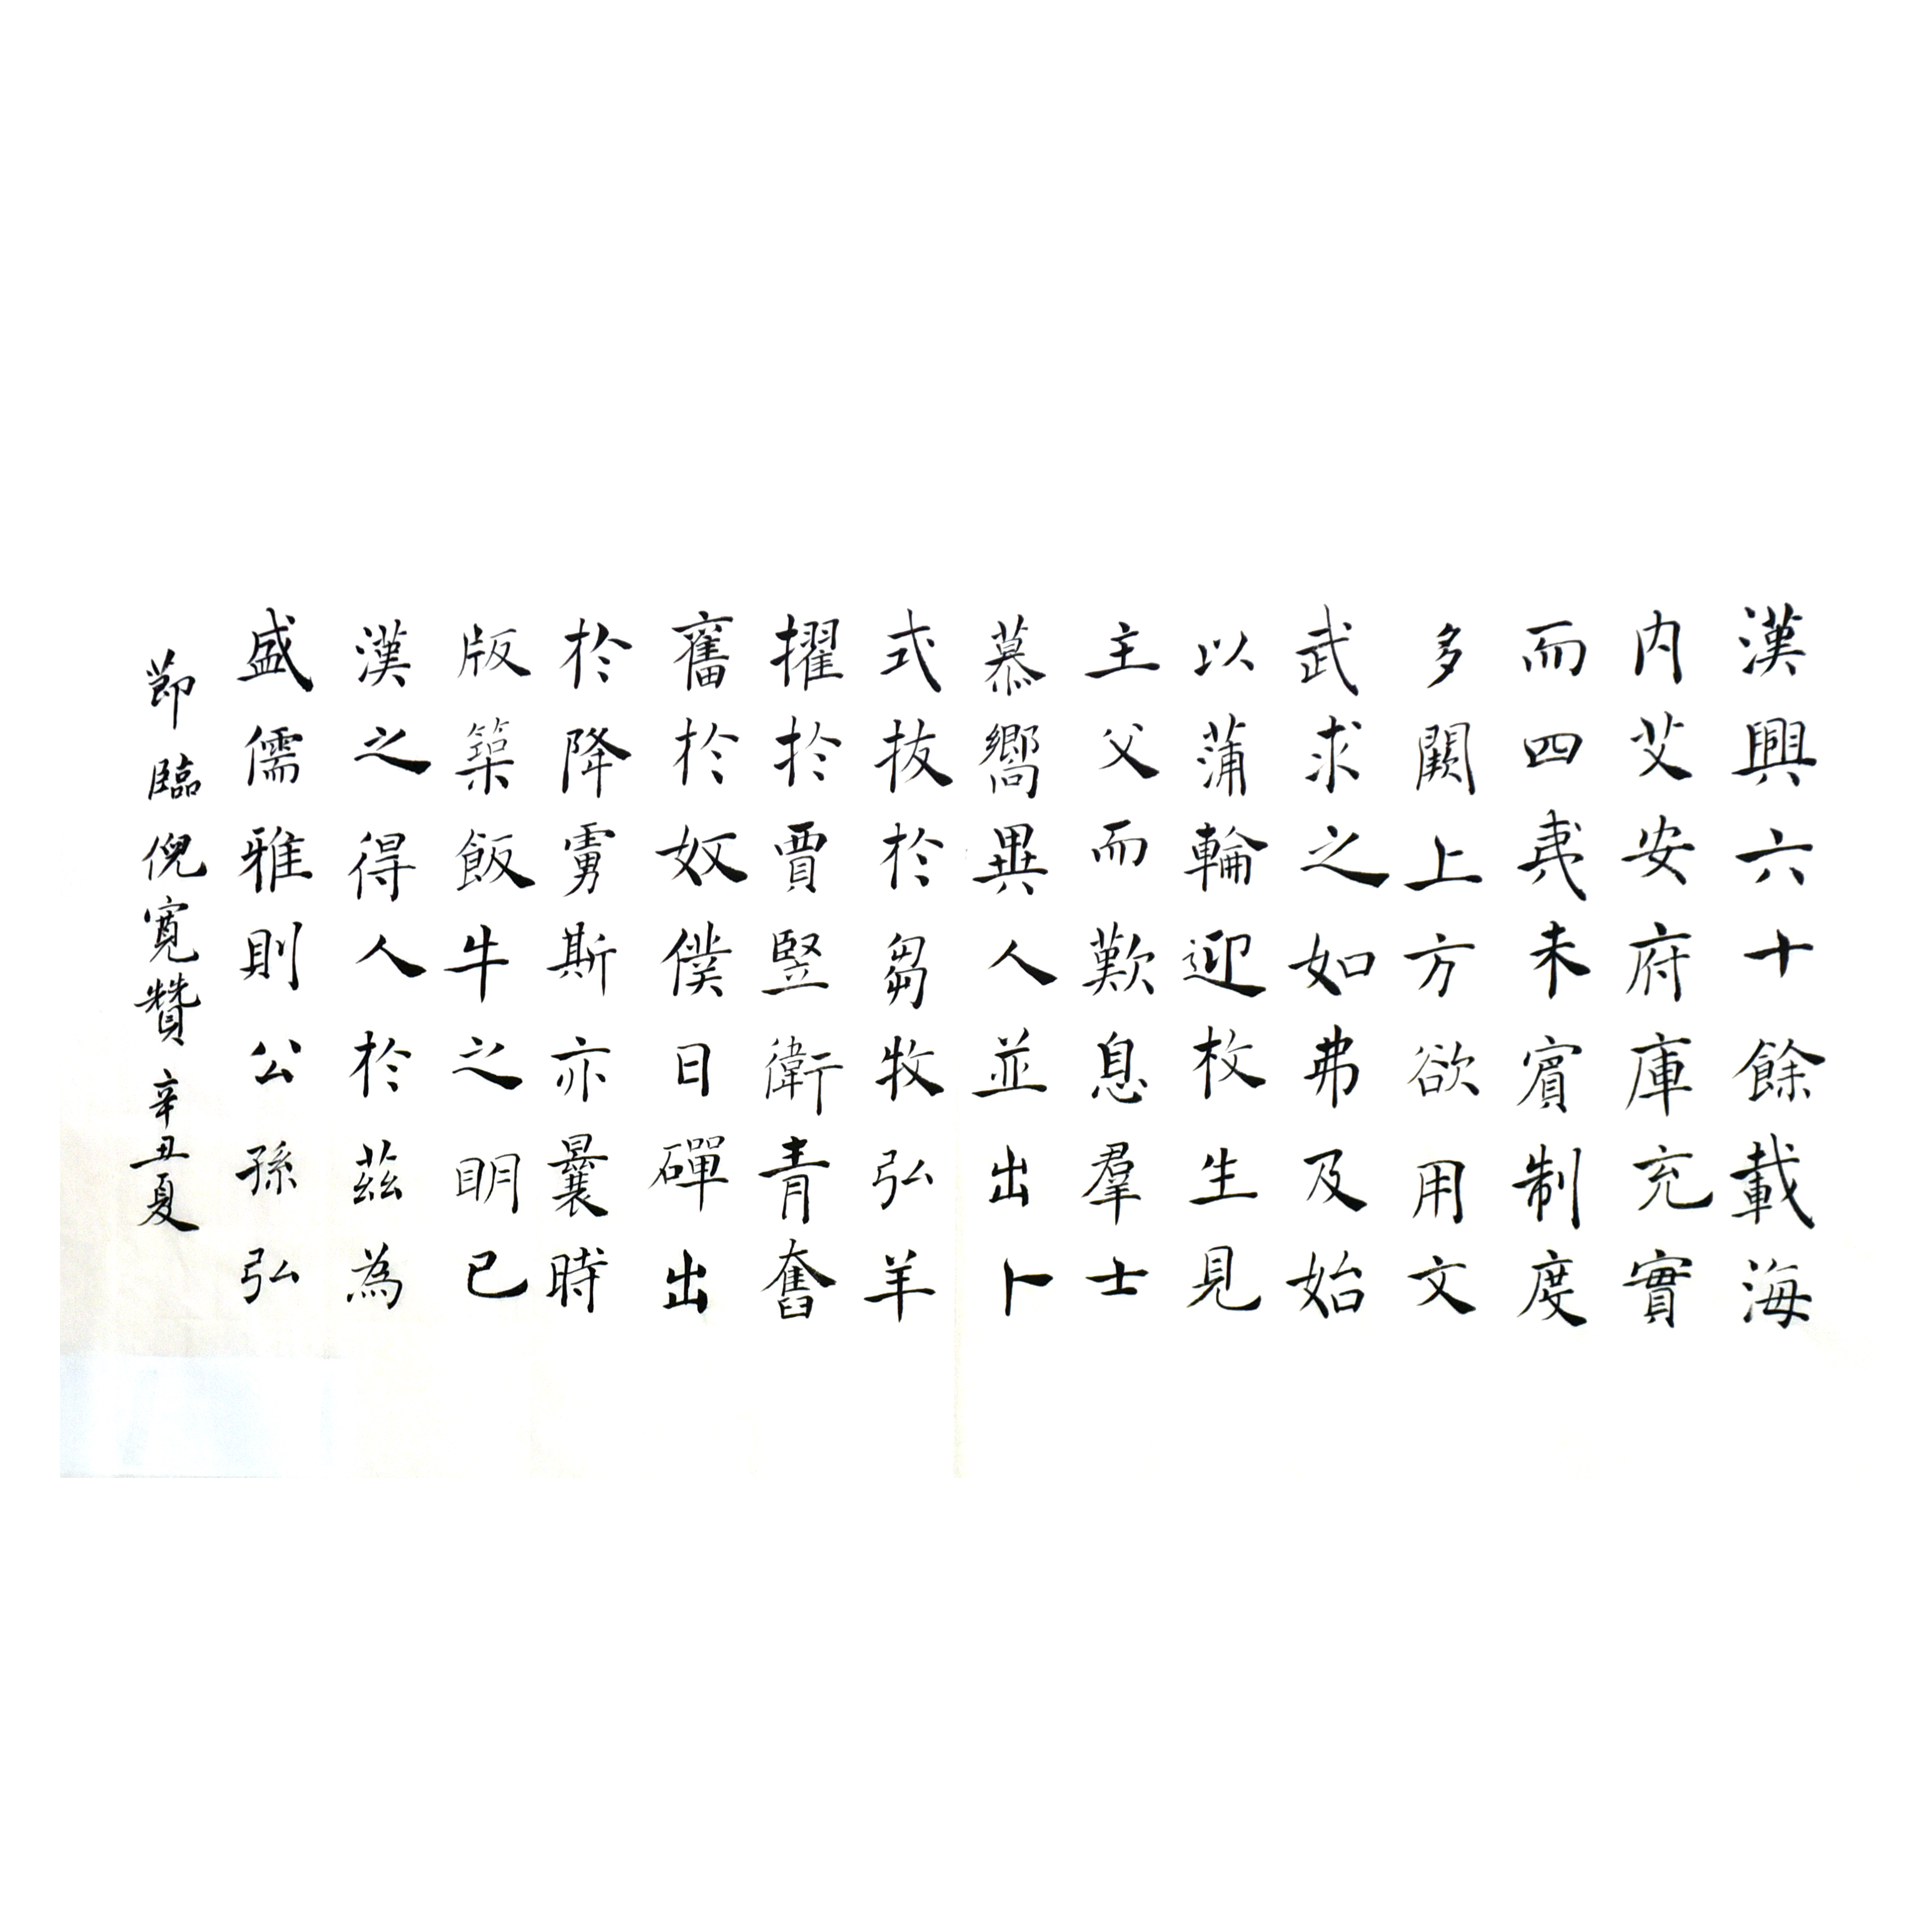 漢興六十餘載海
内艾安府庫充實
而四夷未賓制度
多闕上方欲用文
武求之如弗及始
以蒲輪迎枚生見
主父而歎息羣士
慕嚮異人並出卜
式拔於芻牧弘羊
擢於賈豎衛青奮
奮於奴僕日磾出
於降虜斯亦曩時
版築飯牛之明已
漢之得人於茲為
盛儒雅則公孫弘
節臨倪寬贊辛丑夏